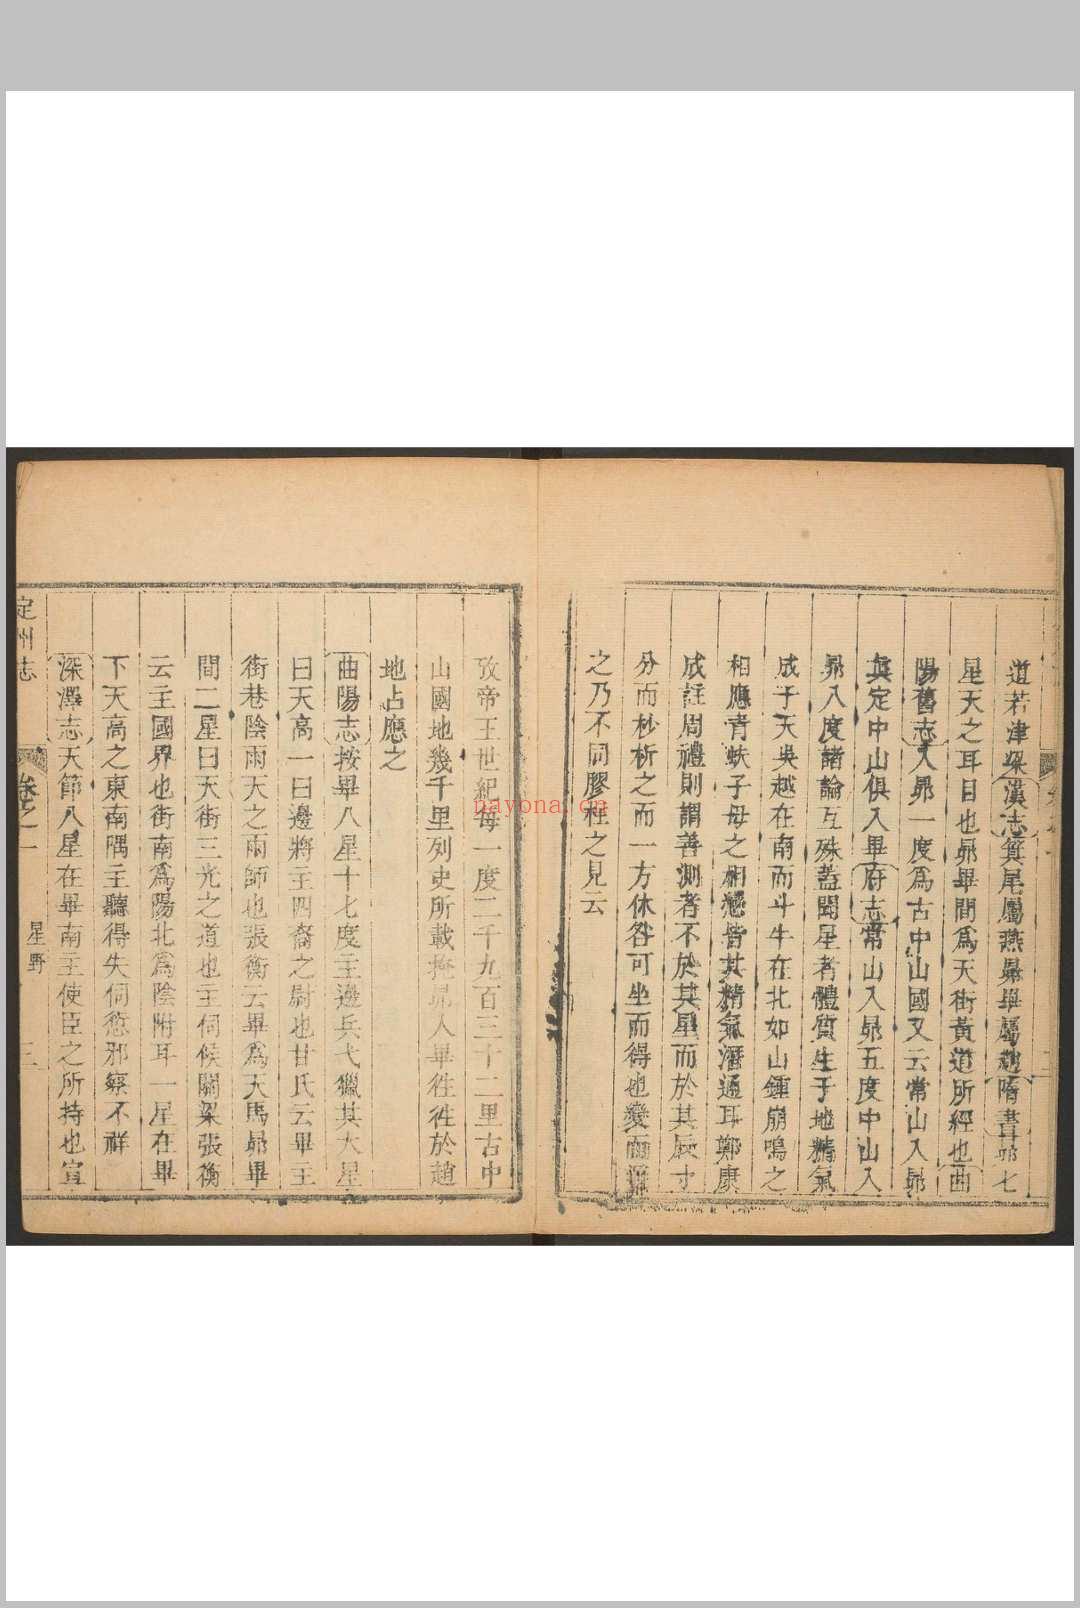 道若津梁漢志箕尾屬燕昴畢屬趙隋書昴七
星天之耳目也昴畢間爲天街黃道所經也曲
陽舊志入昴一度爲古中山國又云常山入昴
眞定中山俱入畢府志常山入昴五度中山入
昴八度諸論互殊蓋聞星者體質生于地精氣
成于天吳越在南而斗牛在北如山鍾崩鳴之
相應青蚨子母之相戀皆其精氣潛通耳鄭康
成註周禮則謂善測者不於其星而於其辰寸
分而杪析之而一方休咎可坐而得也變而通
之乃不同膠柱之見云
攷帝王世紀每一度二千九百三十二里古中
山國地幾千里列史所載掩昴入畢徃徃於趙
地占應之
曲陽志按畢八星十七度主邊兵弋獵其大星
曰天高一曰邊將主四裔之尉也甘氏云畢主
街巷陰雨天之雨師也張衡云畢爲天馬昴畢
間二星曰天街三光之道也主伺候關梁張衡
云主國界也街南爲陽北爲陰附耳一星在畢
下天高之東南隅主聽得失伺愆邪察不祥
深澤志天節八星在畢南主使臣之所持也宜
定州志 卷之一 星野 三
nayona.cn